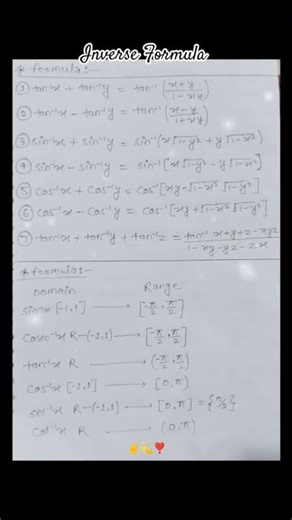 Inverse Formula
* formula:-
① tan⁻¹x + tan⁻¹y = tan⁻¹ (x+y / 1-xy)
② tan⁻¹x - tan⁻¹y = tan⁻¹ (x-y / 1+xy)
③ sin⁻¹x + sin⁻¹y = sin⁻¹(x√1-y² + y√1-x²)
④ sin⁻¹x - sin⁻¹y = sin⁻¹[x√1-y² - y√1-x²]
⑤ cos⁻¹x + cos⁻¹y = cos⁻¹[xy-√1-x² √1-y²]
⑥ cos⁻¹x - cos⁻¹y = cos⁻¹[xy+√1-x² √1-y²]
⑦ tan⁻¹x + tan⁻¹y + tan⁻¹z = tan⁻¹ x+y+z-xyz / 1-xy-yz-zx
* formula:-
Domain Range
sin⁻¹x [-1,1] → [-π/2, π/2]
cosec⁻¹x R-(-1,1) → [-π/2, π/2]
tan⁻¹x R → (-π/2, π/2)
cos⁻¹x [-1,1] → [0,π]
sec⁻¹x R-(-1,1) → [0,π] = {π/2}
cot⁻¹x R → (0,π)